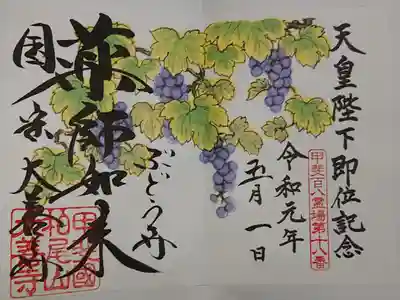 天皇陛下即位記念
甲斐百八霊場第十八番
令和元年
五月一日
ぶどう寺
薬師如来
国宝 大善寺
柏尾山
大善寺